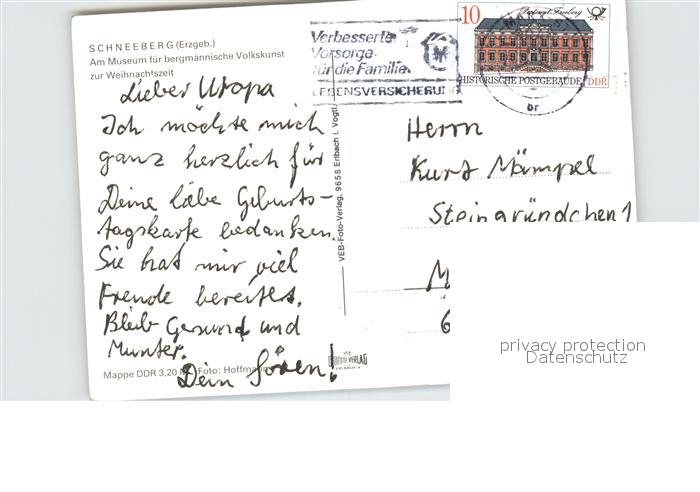 SCHNEEBERG (Erzgeb.)
Am Museum für bergmännische Volkskunst
zur Weihnachtszeit
Lieber Uropa
Ich möchte mich
ganz herzlich für
Deine liebe Geburts-
tagskarte bedanken.
Sie hat mir viel
Freude bereitet.
Bleib Gesund und
Munter.
Dein Sören!
Mappe DDR 3,20 M Foto: Hoffmann
VEB-Foto-Verlag, 9658 Erlbach i. Vogtl.
Verbesserte
Vorsorge
für die Familie.
LEBENSVERSICHERUNG
10
Postamt Freiberg
HISTORISCHE POSTGEBÄUDE DDR
br
Herrn
Kurt Mämpel
Steingründchen 1
M
6
VERLAG
privacy protection
Datenschutz